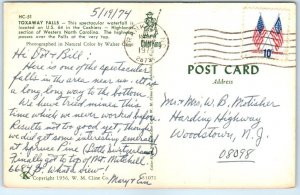 NC-51
TOXAWAY FALLS - This spectacular waterfall is
located on U.S. 64 in the Cashiers - Highlands
section of Western North Carolina. The highway
passes over the Falls at the very top.
Photographed in Natural Color by Walter Cline
5/19/74
Hi Dot & Bill:
Here is one of the spectacular
falls in the area near us. it's
a long long way to the bottom.
We have tried mines this
time which we never worked before.
Results not so good yet, though
we did get some interesting emerald
at Spruce Pine (Both
Finally got to top of Mt. Mitchell
6684 ft. what a view!
Mary + Lin
Copyright 1956, W. M. Cline Co.
POST CARD
Address
10c
Mr + Mrs W. B. Motisher
Harding Highway
Woodstown, N.J.
08098